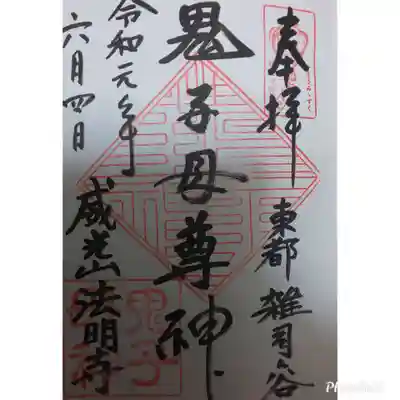 奉拝
東都 雑司谷
鬼子母尊神
威光山法明寺
令和元年
六月四日